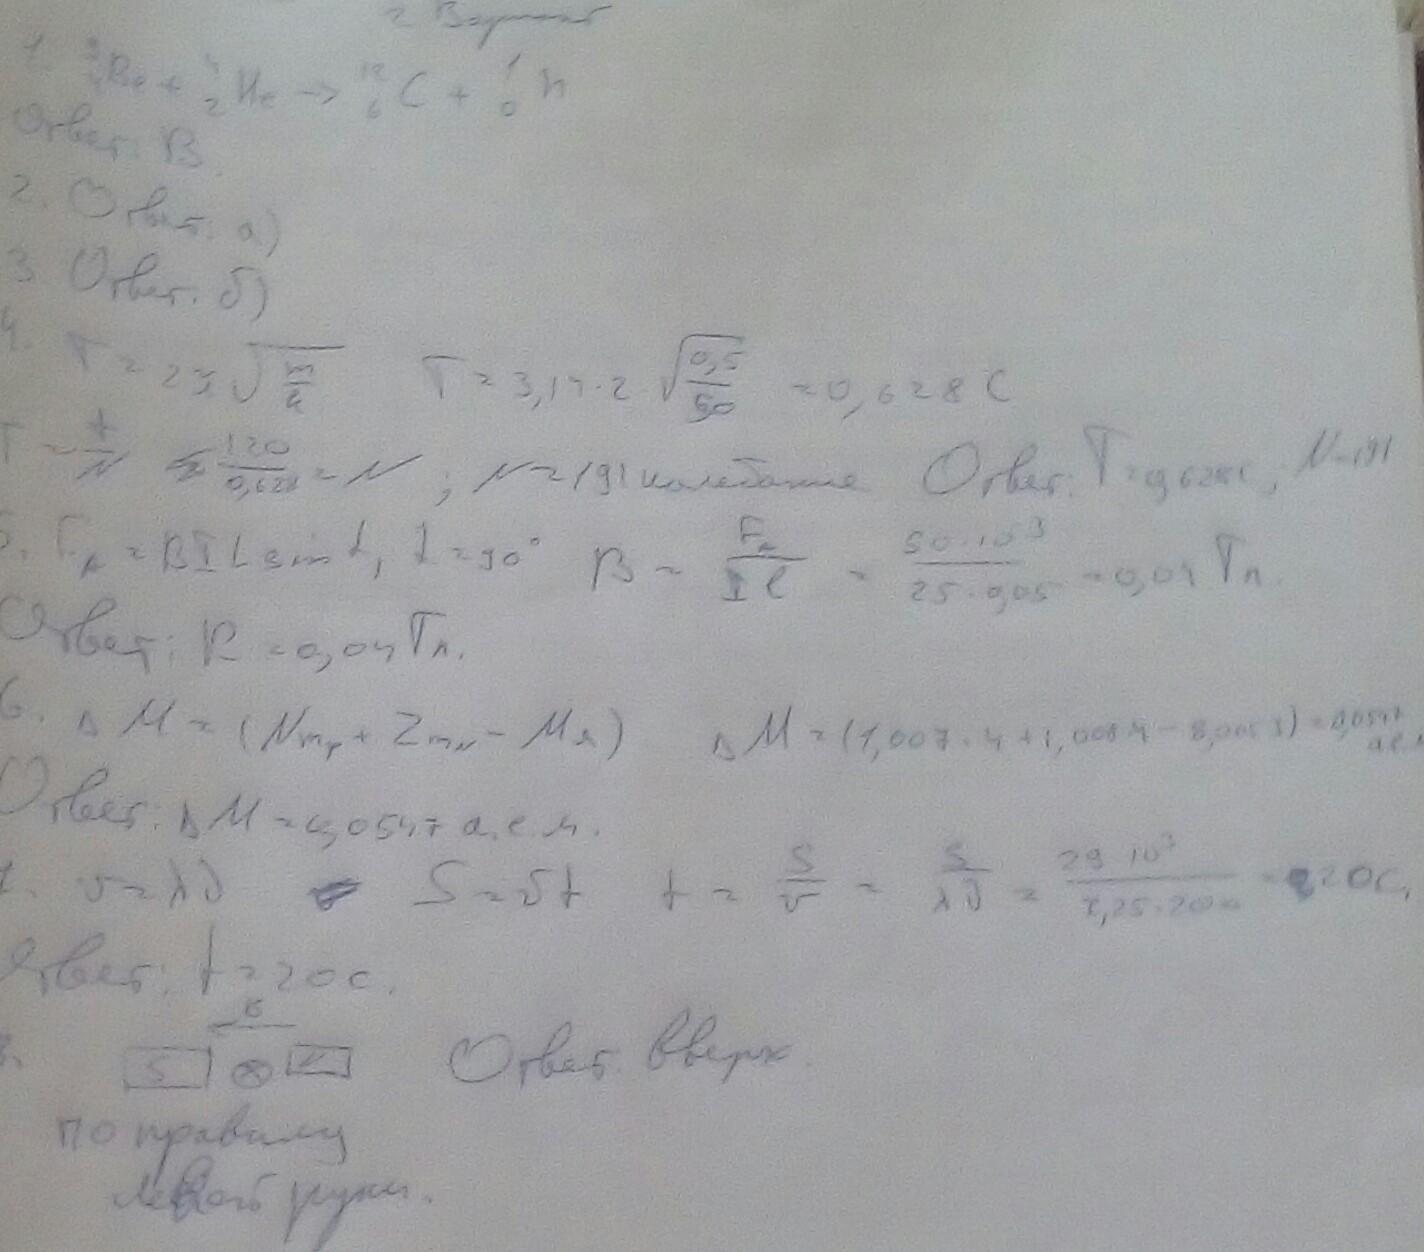 2 Вариант
1. ⁹₄Be + ⁴₂He → ¹²₆C + ¹₀n
Ответ: В
2. Ответ: а)
3. Ответ: б)
4. T = 2π√(m/k) T = 3,14·2·√(0,5/50) = 0,628 С
T = t/N 120/0,628 = N ; N = 191 колебание Ответ: T = 0,628с; N = 191
5. Fₐ = BILsinα, α = 90° B = Fₐ/Iℓ = 50·10³/25·0,05 = 0,04 Тл.
Ответ: B = 0,04 Тл.
6. ΔM = (Nmₚ + Zmₙ - Mя) ΔM = (1,007·4 + 1,008·4 - 8,0053) = 0,0547 а.е.м
Ответ: ΔM = 0,0547 а.е.м.
7. v = λν S = vt t = S/v = S/λν = 29·10³/7,25·200 = 20с.
Ответ: t = 20с.
B
8. S ⊗ Ответ: Вверх.
по правилу
левой руки.